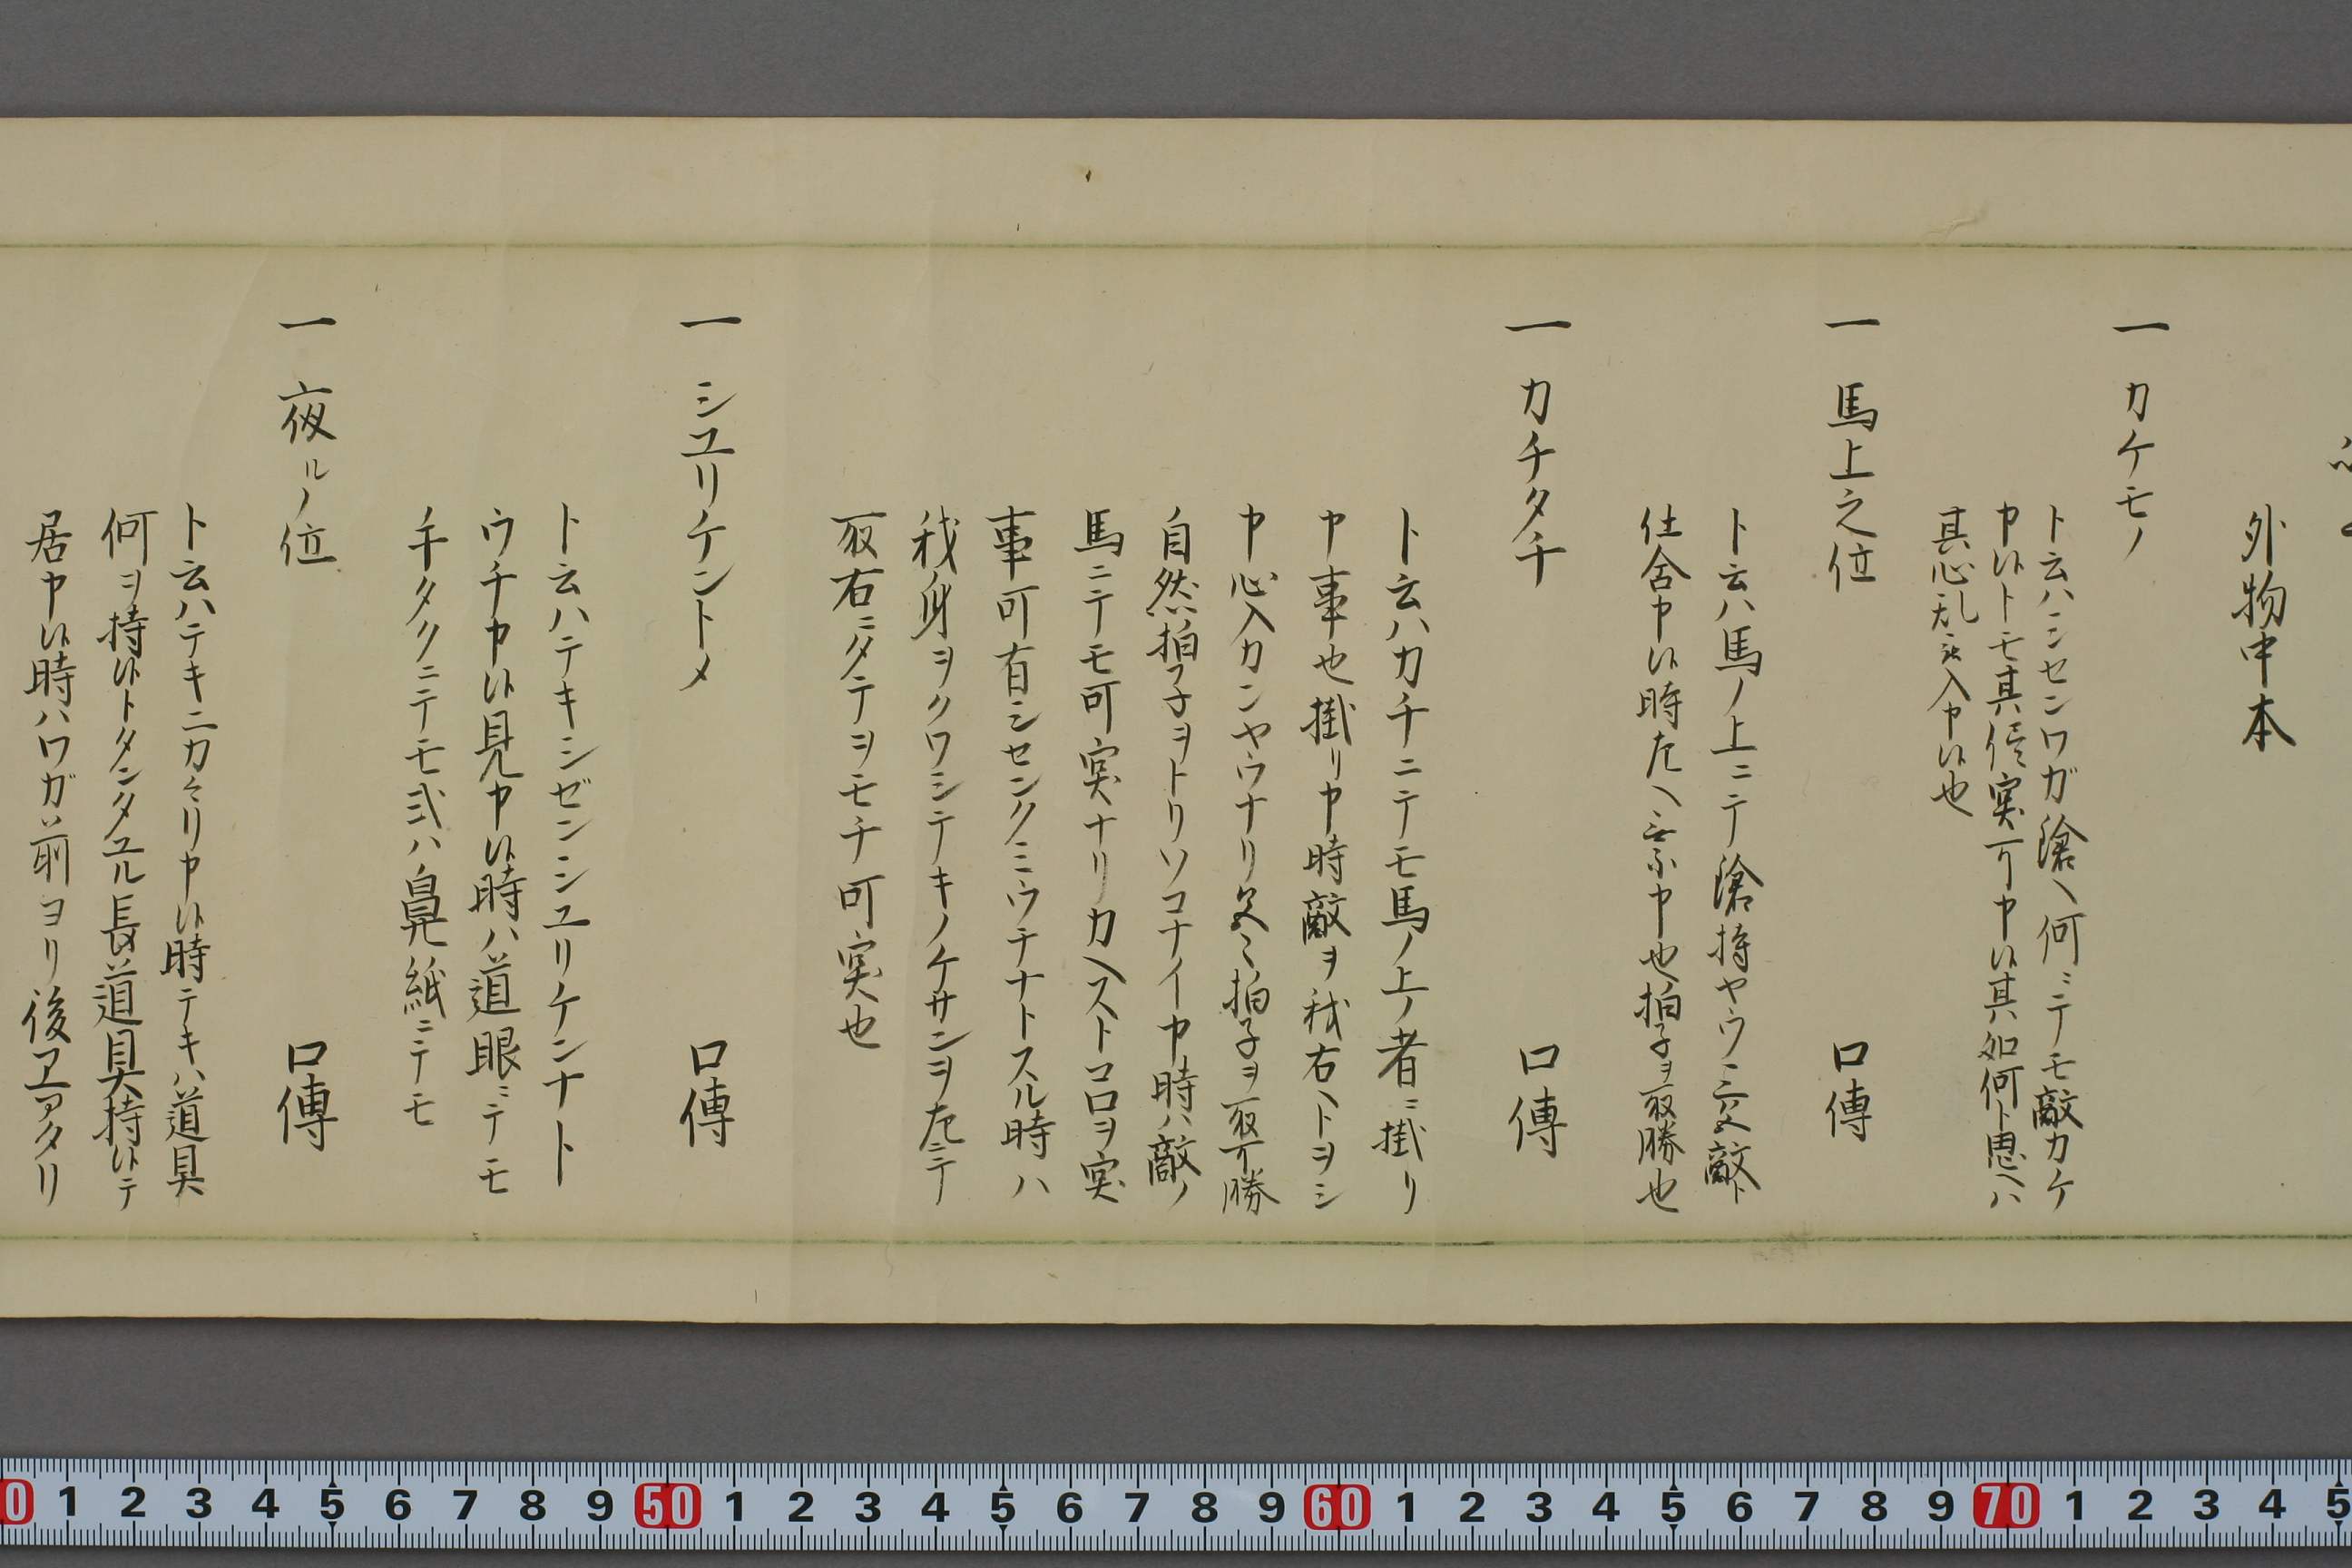 外物中本
一 カケモノ
ト云ハシセンワガ滄ヘ何ニテモ敵カケ
申候トモ其侭実可申候其如何ト思ヘハ
其心乱レ入申候也
一 馬上之位 口傳
ト云ハ馬ノ上ニテ滄持ヤウ 敵ト
仕合申候時左ヘ 申也拍子ヲ取勝也
一 カチタチ 口傳
ト云ハカチニテモ馬ノ上ノ者ニ掛リ
申事也掛リ申時敵ヲ我右ヘトヲシ
申心入カンヤウナリ 拍子ヲ取可勝
自然拍子ヲトリソコナイ申時ハ敵ノ
馬ニテモ可実ナリカヘストコロヲ実
事可有シセンクミウチナトスル時ハ
我身ヲクワシテキノケサンヲ左ニテ
取右ニタテヲモチ可実也
一 シユリケントメ 口傳
ト云ハテキシゼンシユリケンナト
ウチ申候見申候時ハ道眼ニテモ
手タクニテモ弐ハ鼻紙ニテモ
一 夜ルノ位 口傳
ト云ハテキニカヽリ申候時テキハ道具
何ヲ持候トタンタユル長道具持候テ
居申候時ハワガ前ヨリ後アタリ